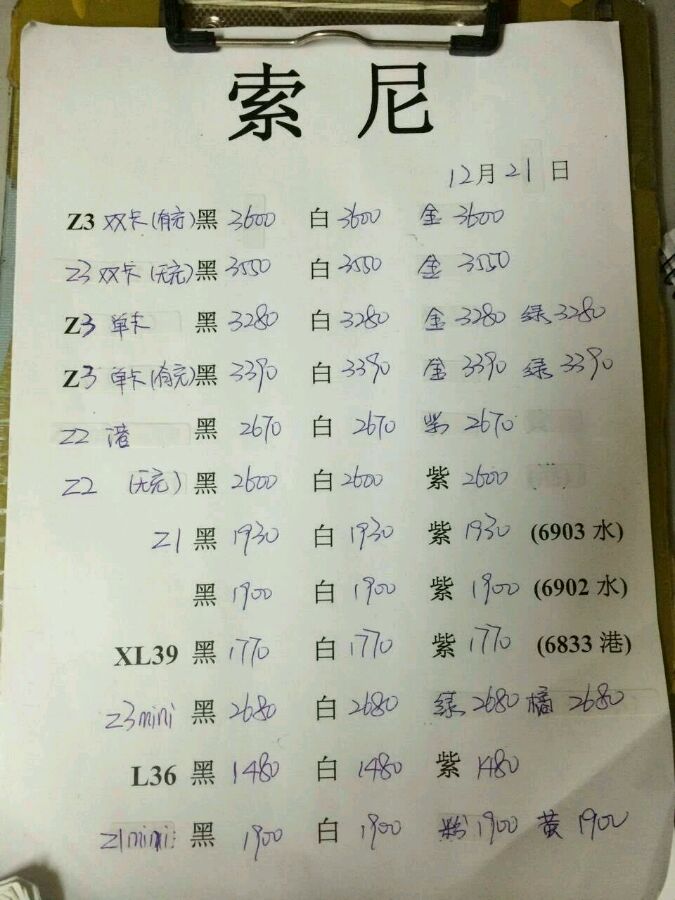 索尼
12月21日
Z3 双卡(有充)黑 3600 白 3600 金 3600
Z3 双卡(无充)黑 3550 白 3550 金 3550
Z3 单卡 黑 3280 白 3280 金 3280 绿 3280
Z3 单卡(有充)黑 3390 白 3390 金 3390 绿 3390
Z2 港 黑 2670 白 2670 紫 2670
Z2 (无充) 黑 2600 白 2600 紫 2600
Z1 黑 1930 白 1930 紫 1930 (6903 水)
黑 1900 白 1900 紫 1900 (6902 水)
XL39 黑 1770 白 1770 紫 1770 (6833 港)
Z3mini 黑 2680 白 2680 绿 2680 橘 2680
L36 黑 1480 白 1480 紫 1480
Z1mini 黑 1900 白 1900 粉 1900 黄 1900